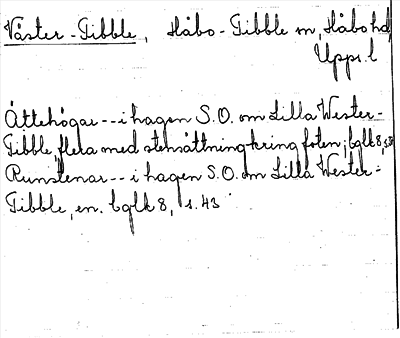 Väster-Tibble, Håbo-Tibble sn, Håbo hd
Upps. l
Ättehögar--i hagen S.O. om Lilla Wester-
Tibble, flera med stensättning kring foten; bglk 8, s. 43
Runstenar--i hagen S.O. om Lilla Wester-
Tibble, en. bglk 8, s. 43